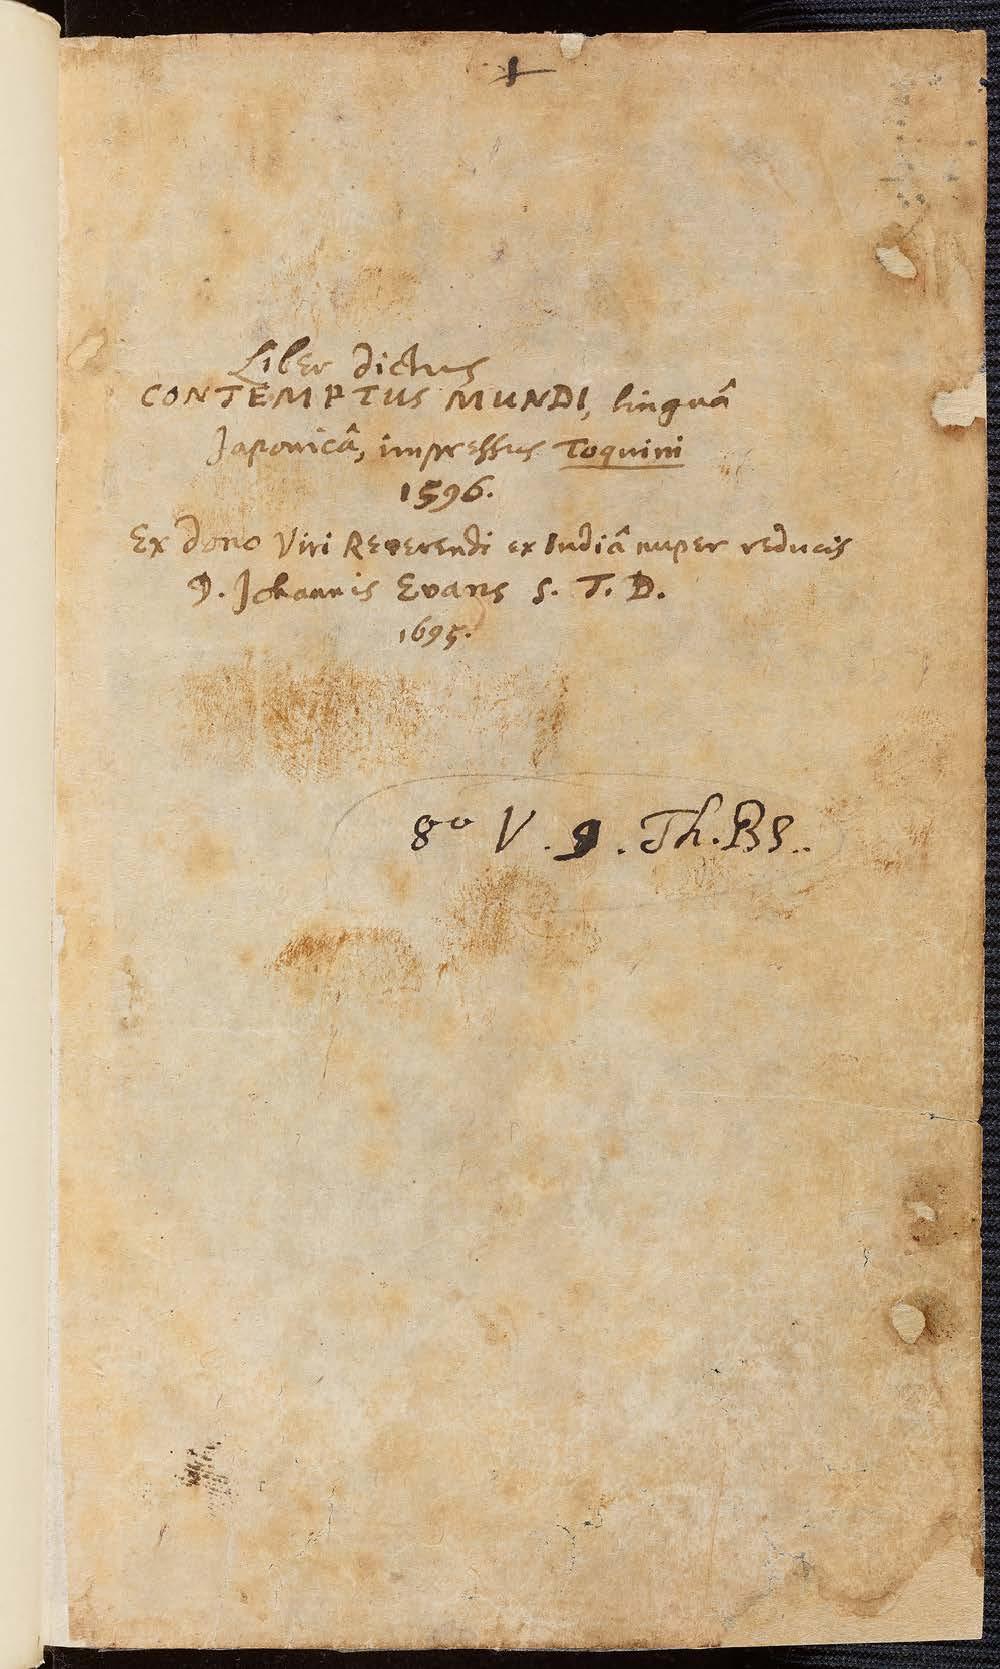 Liber dictus
CONTEMPTUS MUNDI, linguâ
Japonicâ, impressus Toquini
1596.
Ex dono Viri Reverendi ex Indiâ nuper reducis
D. Johannis Evans S. T. D.
1695.
8º V. 9. Th. BS.